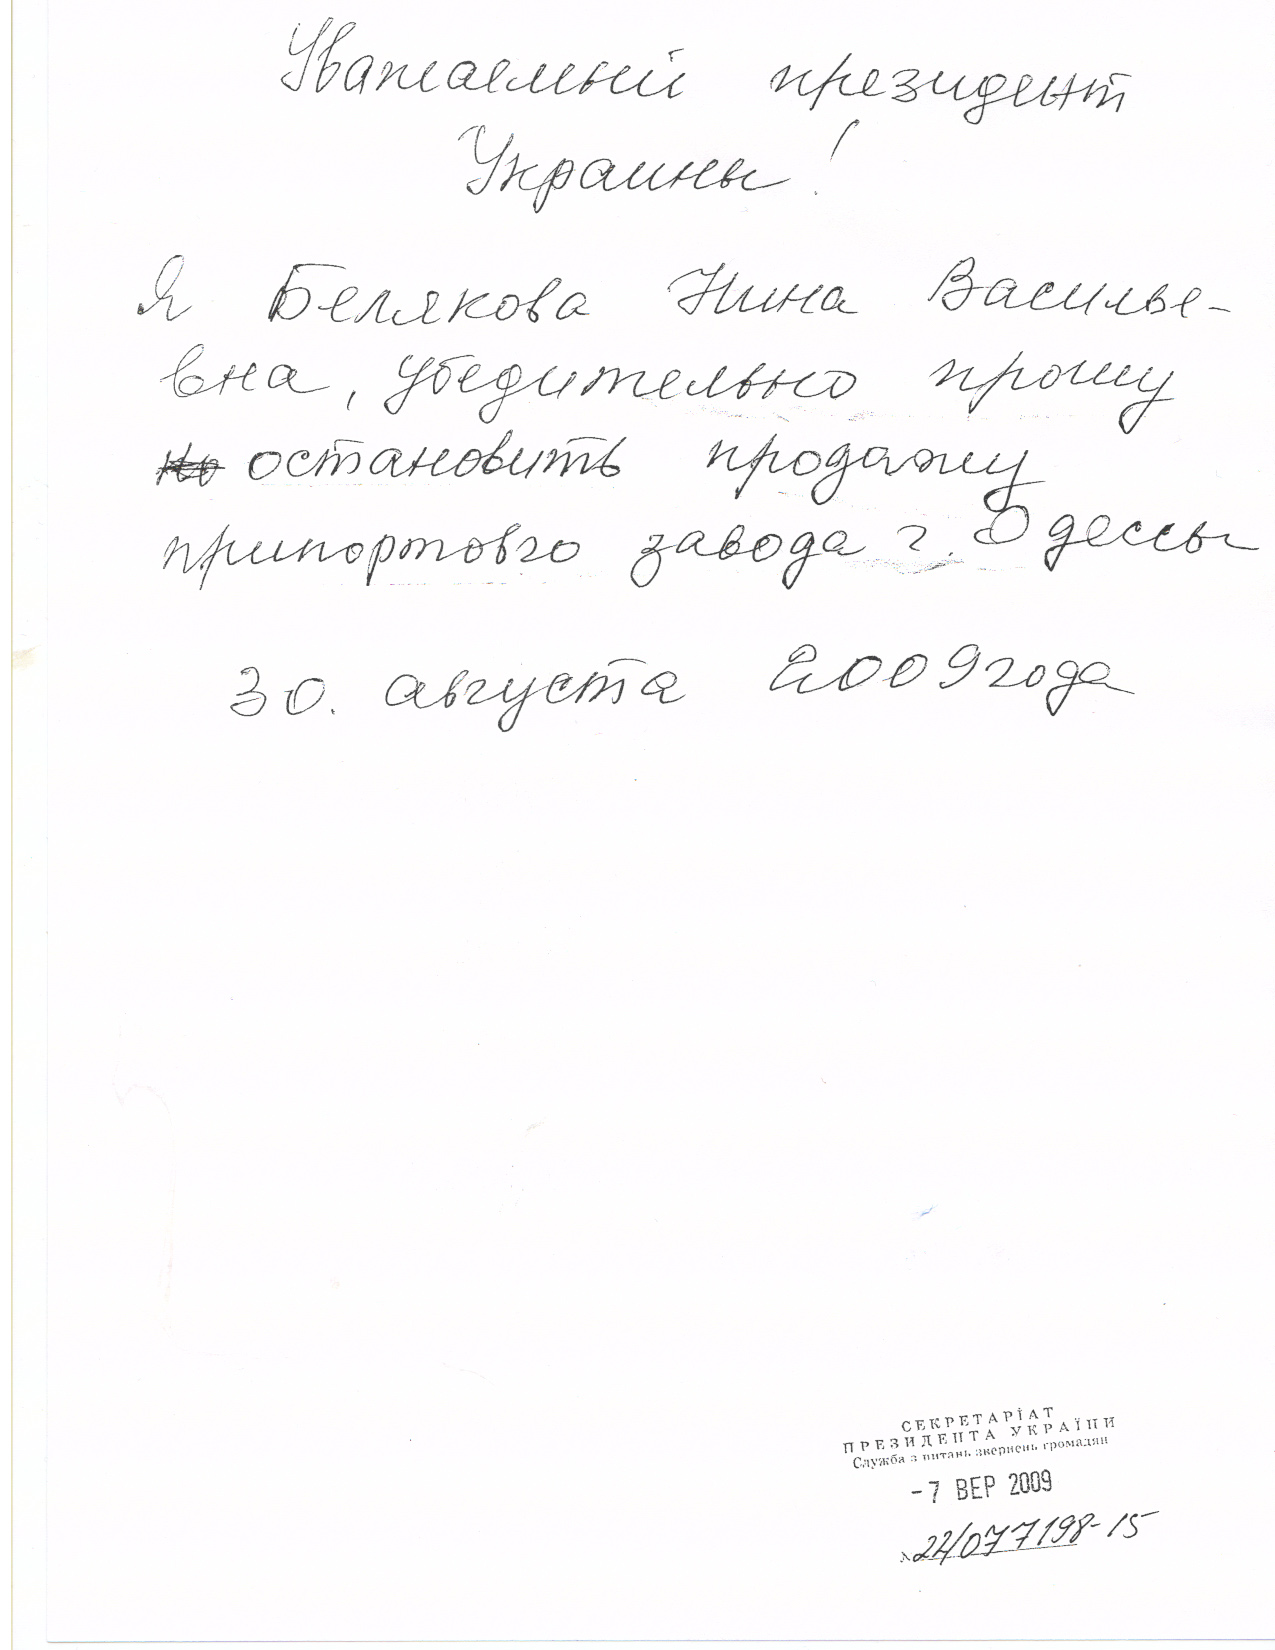 Уважаемый президент
Украины!
Я Белякова Нина Василье-
вна, убедительно прошу
остановить продажу
припортовго завода г. Одессы
30. августа 2009 года
СЕКРЕТАРІАТ
ПРЕЗИДЕНТА УКРАЇНИ
Служба з питань звернень громадян
-7 ВЕР 2009
№22/077198-15